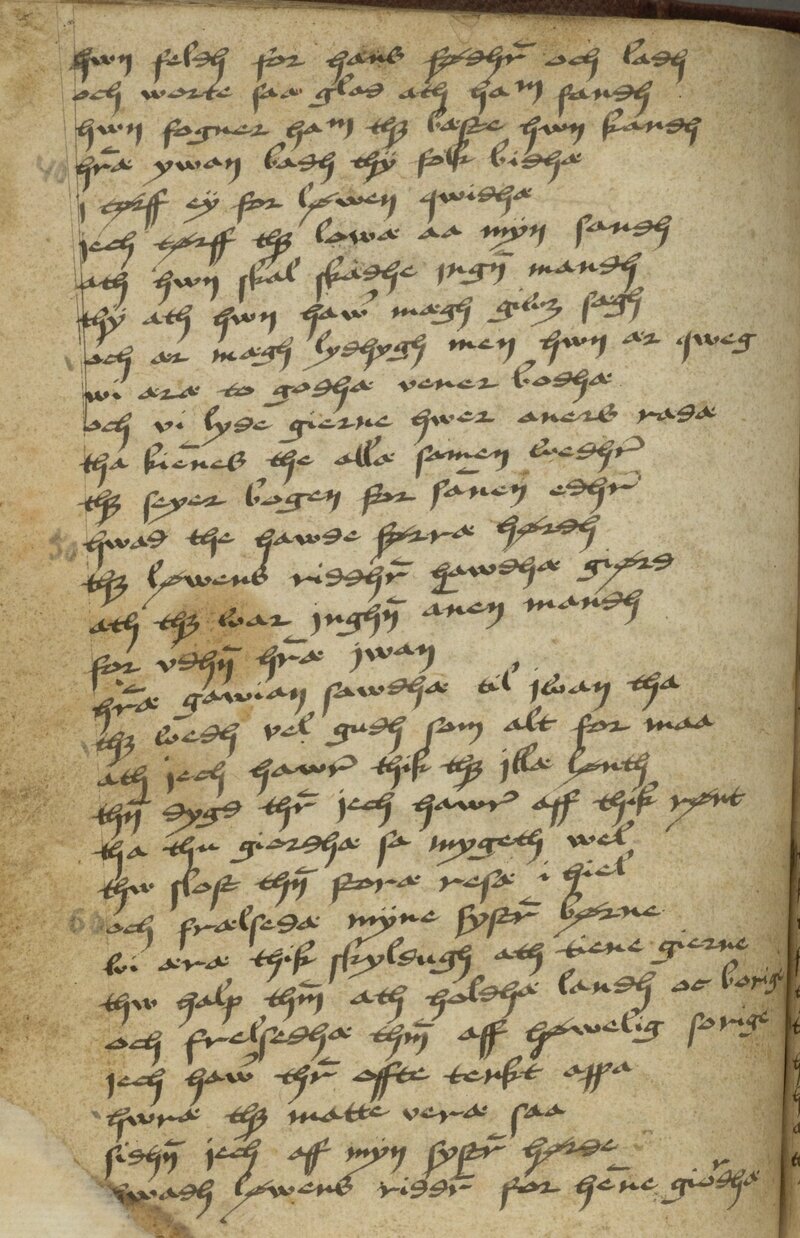 hwn feldh for hans fødhr̄ och ladh
och worte saa glad ath haᵐ fandh
hwn fogner haᵐ thꝫ bæste hwn kandh
40 hr̄æ ywan badh thÿ folk bidhæ
j tørff eÿ for løwen qwidhæ
jech tørff thꝫ lowæ aa mÿn sandh
ath hwn skal skadhe jngn̄ mandh
thÿ ath hwn haw̄ mægh giwꝫ sagh
och ær mægh lydhygh men hwn ær qweg
wi æræ to godhæ vener bodhæ
och vi lyde gierne hwer aners radæ
tha kiēnes the allæ samen wedhr̄
thꝫ seyer bogen for sānen edhr̄
50 hwad the hawde førræ hørdh
thꝫ løwens riddhr̄ hawdhæ giørd
ath thꝫ war jnghn̄ ānen mandh
for vdhn̄ hr̄æ jwan
hr̄æ gawian sawdhæ til jwan tha
thꝫ wedh vel gudh som alt for maa
ath jech hawr̄ thik thꝫ jllæ lønth
thn̄ dygd thr̄ jech hawr̄ aff thik rønt
tha thu giordhæ sa mygeth wel
thw slost thn̄ storæ resæ i hiel
60 och frælsedæ mÿne systr̄ børne
wi æræ thik skyldugh ath tiene gierne
thw halp thm̄ ath holdhæ landh oc borige
och frelsedhæ thm̄ aff høwelig sorige
jech haw̄ thr̄ offte tenkt appa
hwræ thꝫ matte veræ saa
sidhn̄ jech aff mÿn systr̄ hørde
hwadh løwens riddr̄ for hēne giordhæ